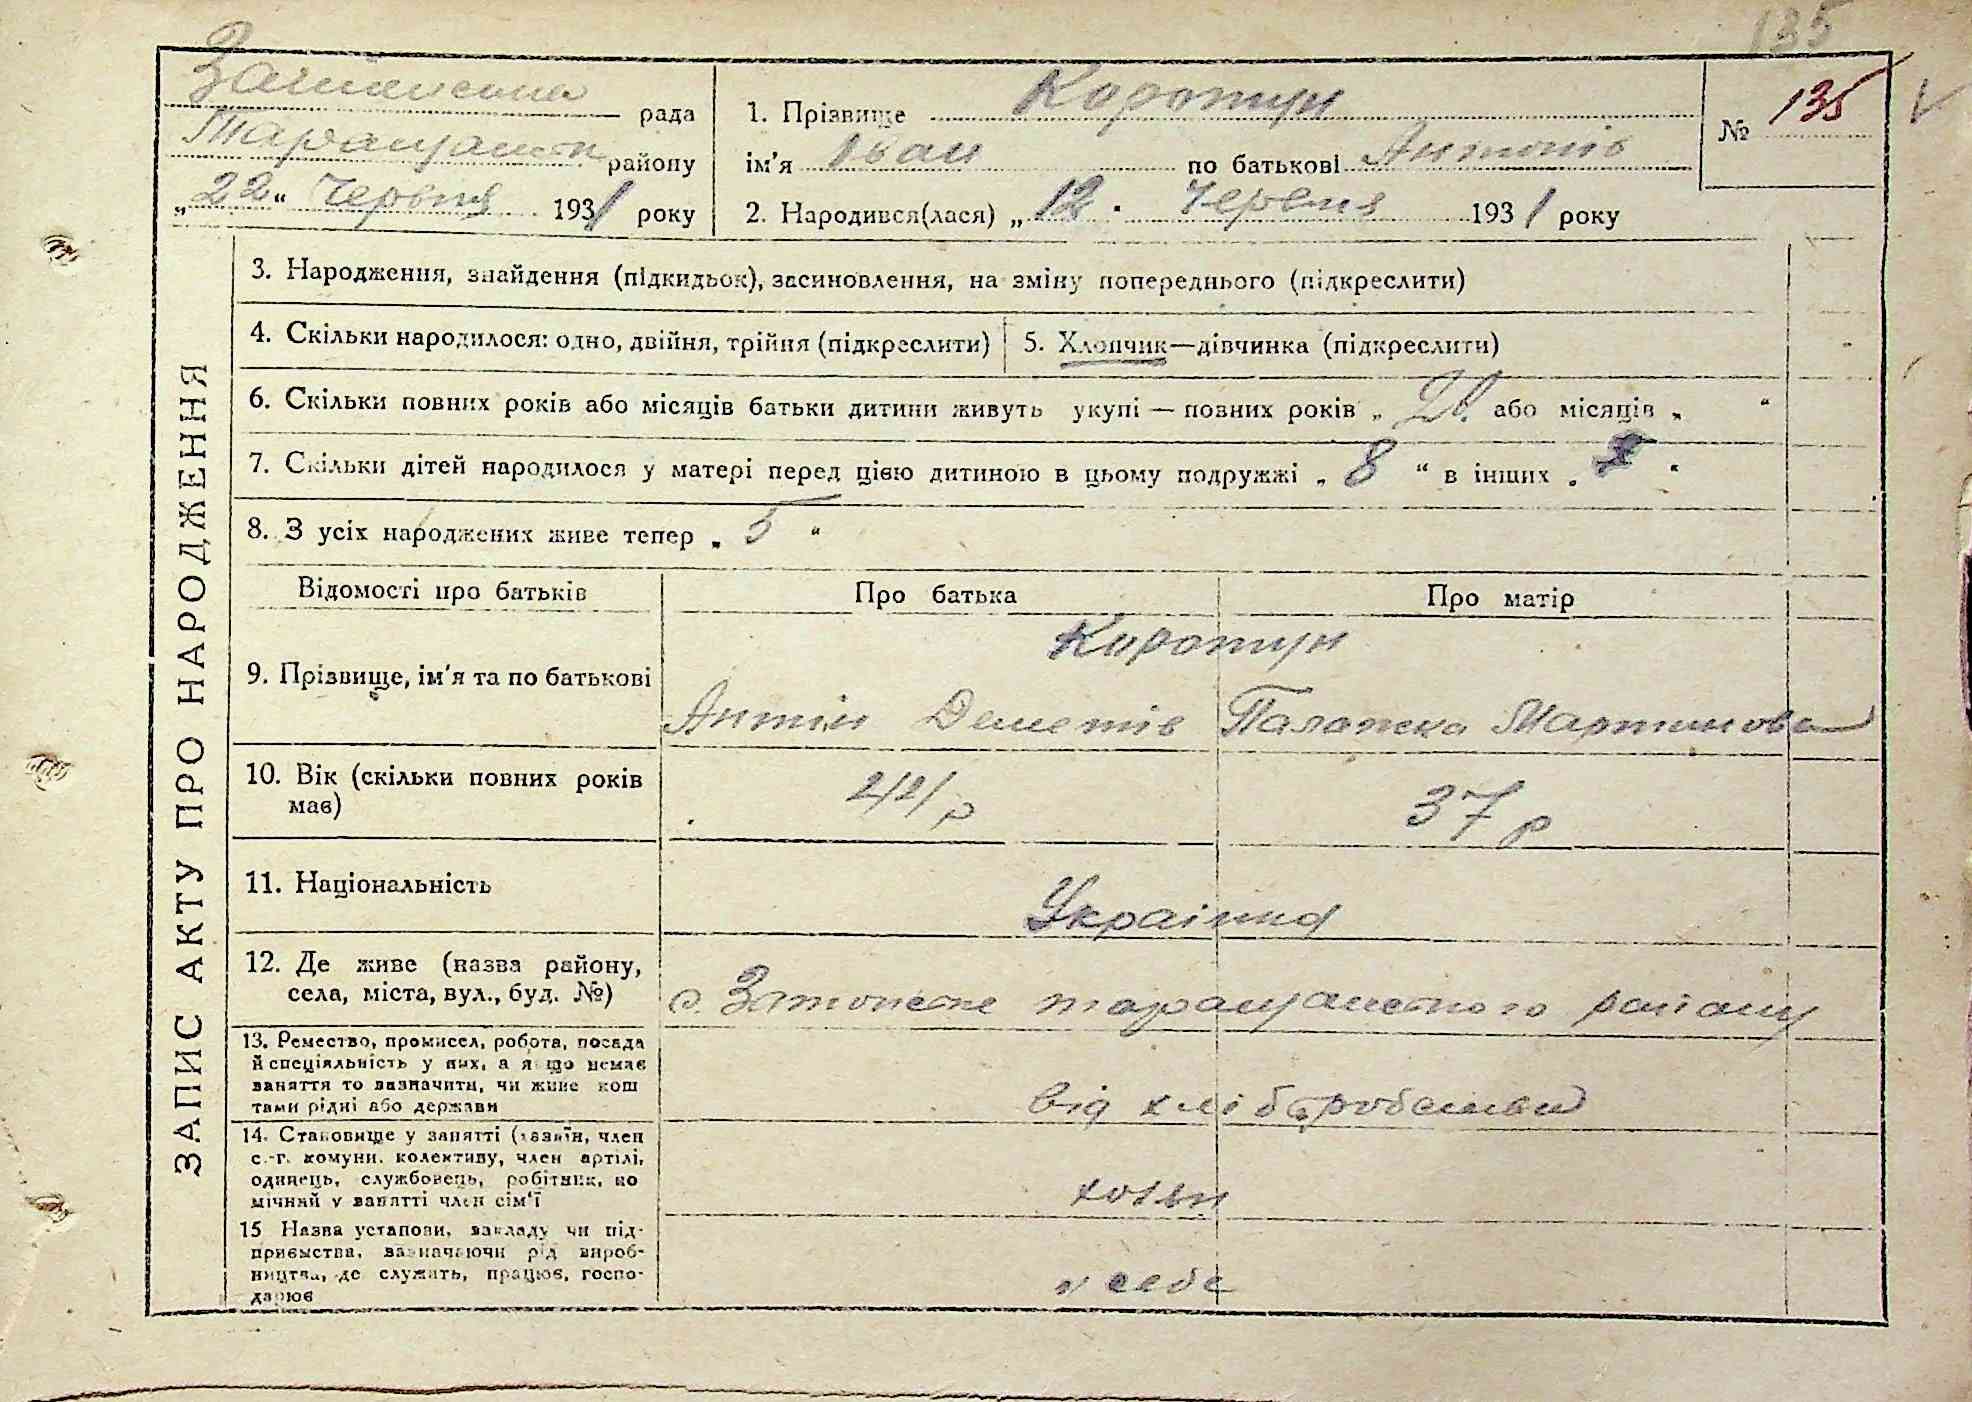 135
рада
району
„22“ Червня 1931 року
1. Прізвище Коротун
ім'я Іван по батькові Антонів
2. Народився(лася) „12“ Червня 1931 року
№ 135
ЗАПИС АКТУ ПРО НАРОДЖЕННЯ
3. Народження, знайдення (підкидьок), засиновлення, на зміну попереднього (підкреслити)
4. Скільки народилося: одно, двійня, трійня (підкреслити)
5. Хлопчик—дівчинка (підкреслити)
6. Скільки повних років або місяців батьки дитини живуть укупі — повних років „ або місяців „ “
7. Скільки дітей народилося у матері перед цією дитиною в цьому подружжі „ 8 “ в інших „ “
8. З усіх народжених живе тепер „ 5 “
Відомості про батьків
Про батька
Про матір
9. Прізвище, ім'я та по батькові
Коротун
Антін
Палажка Мартинова
10. Вік (скільки повних років
має)
42 р
37 р
11. Національність
Українці
12. Де живе (назва району,
села, міста, вул., буд. №)
с. таращанского району
13. Ремество, промисел, робота, посада
й спеціяльність у них, а якщо немає
заняття то зазначити, чи живе кош
тами рідні або держави
від хліборобства
14. Становище у занятті (хазяїн, член
с.-г. комуни, колективу, член артілі,
одинець, службовець, робітник, по
мічний у занятті член сім'ї
хозяи
15 Назва установи, закладу чи під-
приємства, зазначаючи рід вироб-
ництва, де служить, працює, госпо-
дарює
у себе